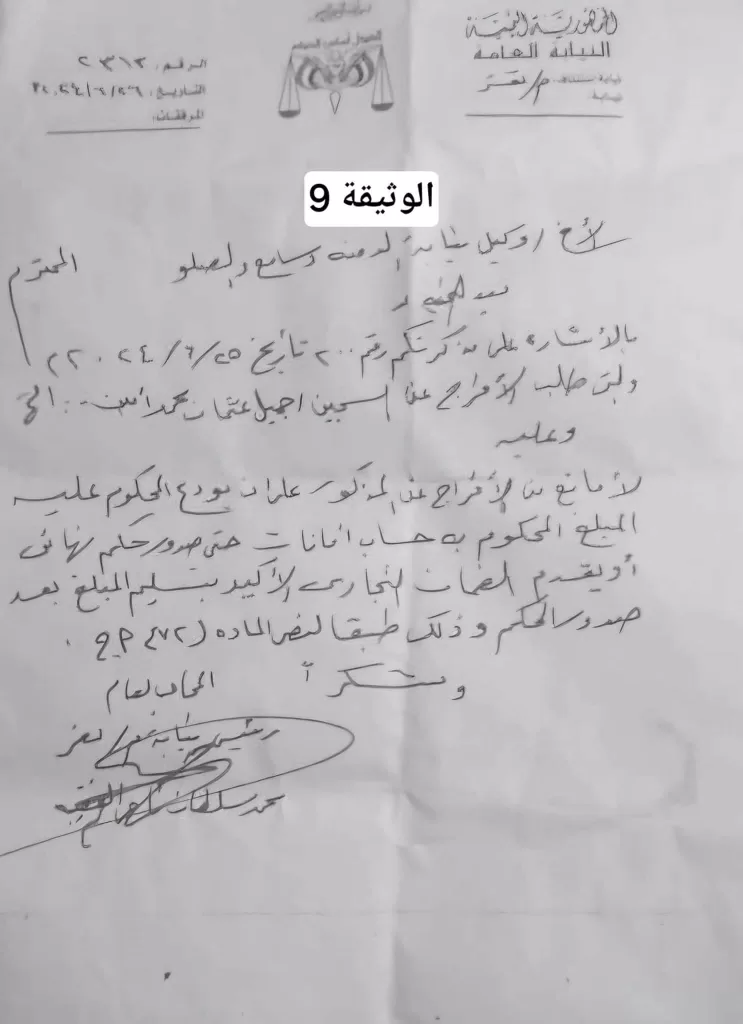 الجمهورية اليمنية
النيابة العامة
م/ تعز
العدل أساس الحكم
الرقم: ٢٣١٢
التاريخ: ٢٠٢٤/٦/٢٦
المرفقات:
الوثيقة 9
الأخ / وكيل نيابة وسامع والصلو المحترم
بعد التحية
بالأشارة على مذكرتكم رقم ٢٠٠ تأريخ ٢٠٢٤/٦/٢٥
طلب الأفراج عن السجين / جميل عثمان محمد
وعليه
لا مانع من الأفراج عن المذكور على ان يودع المحكوم عليه
المبلغ المحكوم به حساب امانات حتى صدور حكم نهائي
أو يقدم الضمان التجاري الأكيد بتسليم المبلغ بعد
صدور الحكم وذلك طبقا لنص الماده (٤٧٢) ج
وشكراً
المحامي العام
رئيس نيابة تعز
محمد سلطان